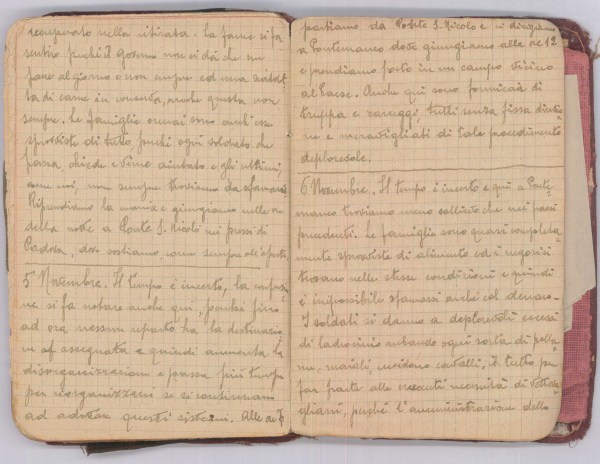 recuperato nella ritirata. La fame si fa
sentire perché il Governo non ci dà che un
pane al giorno e non sempre ed una scatolet
ta di carne in conserva, anche questa non
sempre. Le famiglie ormai sono anch'esse
sprovviste di tutto, perché ogni soldato che
passa, chiede e viene aiutato e gli ultimi,
come noi, non sempre troviamo da sfamarci
Riprendiamo la marcia e giungiamo nelle ore
della notte a Ponte S. Nicolò nei pressi di
Padova, dove sostiamo, come sempre all'aperto.
5 Novembre. Il tempo è incerto, la confusio
ne si fa notare anche qui, poiché fino
ad ora nessun reparto ha la destinazio
ne assegnata e quindi aumenta la
disorganizzazione e passa più tempo
per riorganizzarci se si continuano
ad adottare questi sistemi. Alle ore 7
partiamo da Ponte S. Nicolo e ci dirigiamo
a Pontemanco dove giungiamo alle ore 12
e prendiamo posto in un campo vicino
al Paese. Anche qui sono formicai di
truppa e carreggi, tutti senza fissa direzio
ne e meravigliati di tale procedimento
deplorevole.
6 Novembre. Il tempo è incerto e qui a Ponte
manco troviamo meno sollievo che nei paesi
precedenti. Le famiglie sono quasi completa
mente sprovviste di alimento ed i negozi si
trovano nelle stesse condizioni e quindi
è impossibile sfamarsi anche col denaro.
I soldati si danno a deplorevoli eccessi
di ladrocinio rubando ogni sorta di polla
me, maiali, uccidono cavalli, il tutto per
far fronte alle necessità di vettova
gliarsi, perché l'amministrazione dello